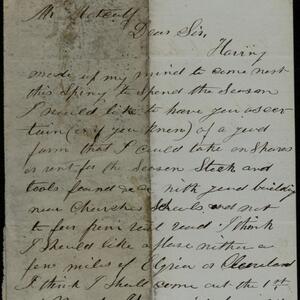 Mr Metcalf
Dear Sir,
Having
made up my mind to come west
this Spring to Spend the Season
I would like to have you ascer
tain (or if you know) of a good
farm that I could take on Shares
or rent for the Season Stock and
tools found &c with good building
near Churches Schools and not
to far from rail road. I think
I Should like a place within a
few miles of Elyria or Cleveland
I think I Shall come out the 1st